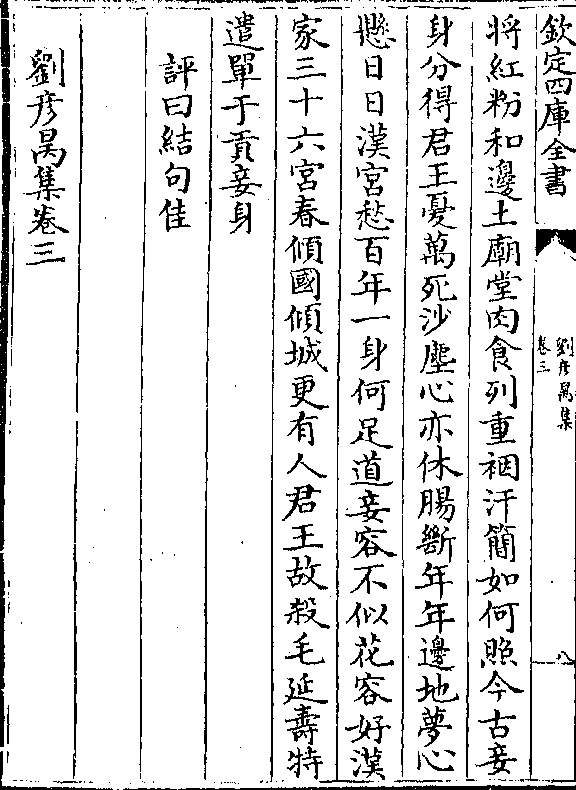 欽定四庫全書
劉彦昺集
卷三
八
將紅粉和邊土廟堂肉食列重裀汗簡如何照今古妾
身分得君王憂萬死沙塵心亦休腸斷年年邊地夢心
懸日日漢宮愁百年一身何足道妾容不似花容好漢
家三十六宮春傾國傾城更有人君王故殺毛延壽特
遣單于貢妾身
評曰結句佳
劉彦昺集卷三